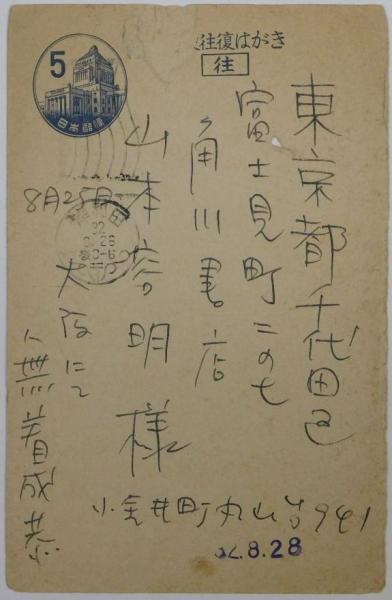 往復はがき
往
5
日本郵便
東京都千代田区
富士見町二の七
角川書店
山本容明様
8月25日
大阪にて
無着成恭
小金井町丸山台941
32.8.28